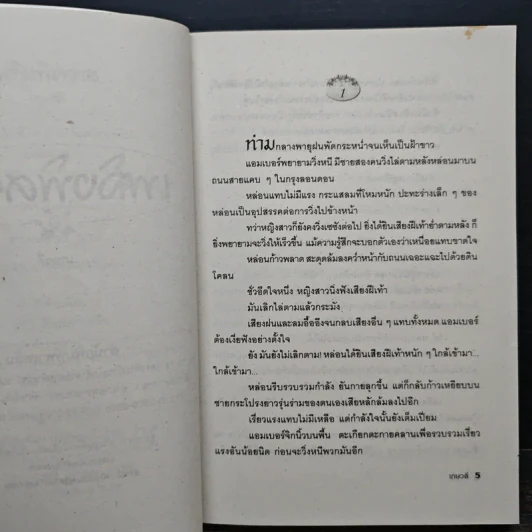 1
ท่ามกลางพายุฝนพัดกระหน่ำจนเห็นเป็นฝ้าขาว
แอมเบอร์พยายามวิ่งหนี มีชายสองคนวิ่งไล่ตามหลังหล่อนมาบน
ถนนสายแคบ ๆ ในกรุงลอนดอน
หล่อนแทบไม่มีแรง กระแสลมที่โหมหนัก ปะทะร่างเล็ก ๆ ของ
หล่อนเป็นอุปสรรคต่อการวิ่งไปข้างหน้า
ทว่าหญิงสาวก็ยังคงวิ่งเซซังต่อไป ยิ่งได้ยินเสียงฝีเท้าย่ำตามหลัง ก็
ยิ่งพยายามจะวิ่งให้เร็วขึ้น แม้ความรู้สึกจะบอกตัวเองว่าเหนื่อยแทบขาดใจ
หล่อนก้าวพลาด สะดุดล้มลงคว่ำหน้ากับถนนเฉอะแฉะไปด้วยดิน
โคลน
ชั่วอึดใจหนึ่ง หญิงสาวนิ่งฟังเสียงฝีเท้า
มันเลิกไล่ตามแล้วกระมัง
เสียงฝนและลมอื้ออึงจนกลบเสียงอื่น ๆ แทบทั้งหมด แอมเบอร์
ต้องเงี่ยฟังอย่างตั้งใจ
ยัง มันยังไม่เลิกตาม! หล่อนได้ยินเสียงฝีเท้าหนัก ๆ ใกล้เข้ามา...
ใกล้เข้ามา...
หล่อนรีบรวบรวมกำลัง ยันกายลุกขึ้น แต่ก็กลับก้าวเหยียบบน
ชายกระโปรงยาวรุ่มร่ามของตนเองเสียหลักล้มลงไปอีก
เรี่ยวแรงแทบไม่มีเหลือ แต่กำลังใจนั้นยังเต็มเปี่ยม
แอมเบอร์จิกนิ้วบนพื้น ตะเกียกตะกายคลานเพื่อรวบรวมเรี่ยว
แรงอันน้อยนิด ก่อนจะวิ่งหนีพวกมันอีก
เกษวดี 5